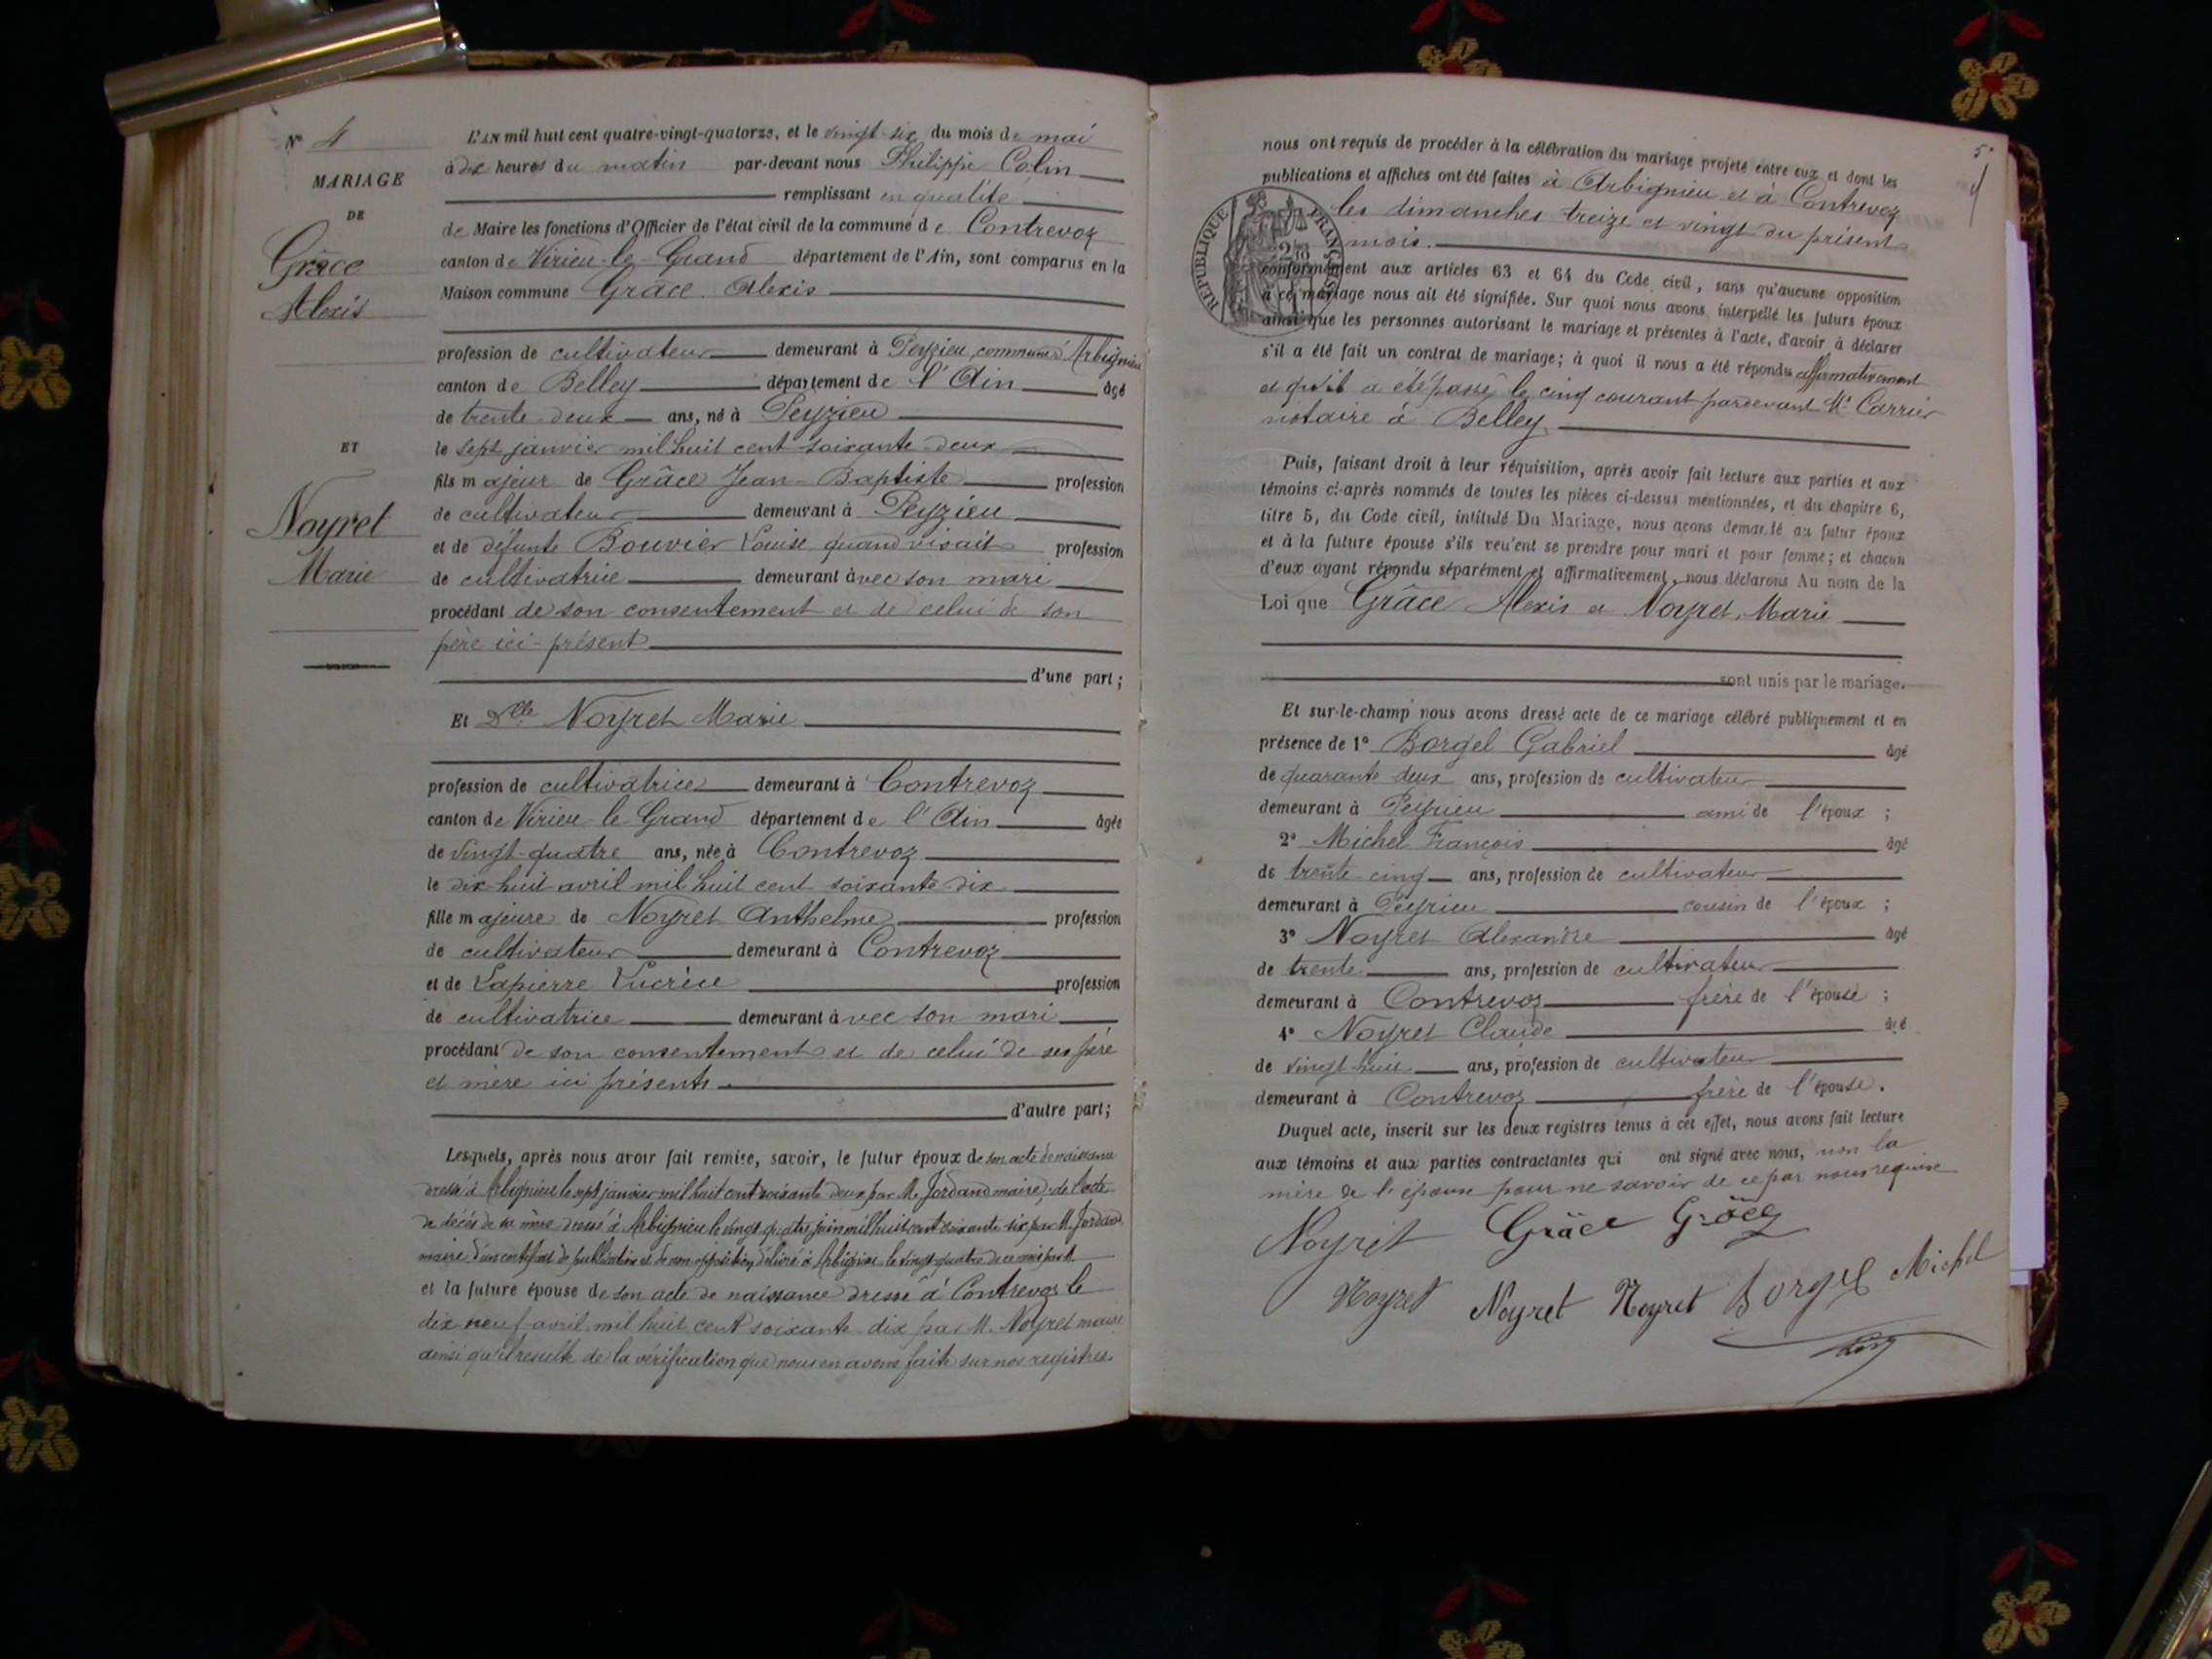 N° 4
MARIAGE
DE
Grâce
Alexis
ET
Noyret
Marie
L'AN mil huit cent quatre-vingt-quatorze, et le vingt-six du mois de mai
à dix heures du matin par-devant nous Philippe Colin
remplissant en qualité
de Maire les fonctions d'Officier de l'état civil de la commune de Contrevoz
canton de Virieu-le-Grand département de l'Ain, sont comparus en la
Maison commune Grâce Alexis
profession de cultivateur demeurant à Peyzieu, commune d'Arbignieu
canton de Belley département de l'Ain âgé
de trente-deux ans, né à Peyzieu
le sept janvier mil huit cent soixante-deux
fils majeur de Grâce Jean-Baptiste profession
de cultivateur demeurant à Peyzieu
et de défunte Bouvier Louise quand vivait profession
de cultivatrice demeurant avec son mari
procédant de son consentement et de celui de son
père ici-présent
d'une part;
Et Dlle Noyret Marie
profession de cultivatrice demeurant à Contrevoz
canton de Virieu-le-Grand département de l'Ain âgée
de vingt-quatre ans, née à Contrevoz
le dix-huit avril mil huit cent soixante-dix
fille majeure de Noyret Anthelme profession
de cultivateur demeurant à Contrevoz
et de Lapierre Lucrèce profession
de cultivatrice demeurant avec son mari
procédant de son consentement et de celui de ses père
et mère ici présents
d'autre part;
Lesquels, après nous avoir fait remise, savoir, le futur époux de son acte de naissance
dressé à Arbignieu le sept janvier mil huit cent soixante deux par M. Jordand maire, de l'acte
de décès de sa mère dressé à Arbignieu le vingt quatre juin mil huit cent soixante six par M. Jordand
maire d'un certificat de publication et de non opposition délivré à Arbignieu le vingt-quatre de ce mois
et la future épouse de son acte de naissance dressé à Contrevoz le
dix neuf avril mil huit cent soixante-dix par M. Noyret maire
ainsi qu'il résulte de la vérification que nous en avons faite sur nos registres
5
nous ont requis de procéder à la célébration du mariage projeté entre eux et dont les
publications et affiches ont été faites à Arbignieu et à Contrevoz
les dimanches treize et vingt du présent
mois.
RÉPUBLIQUE FRANÇAISE
conformément aux articles 63 et 64 du Code civil, sans qu'aucune opposition
à ce mariage nous ait été signifiée. Sur quoi nous avons interpellé les futurs époux
ainsi que les personnes autorisant le mariage et présentes à l'acte, d'avoir à déclarer
s'il a été fait un contrat de mariage; à quoi il nous a été répondu affirmativement
et qu'il a été passé le cinq courant pardevant Me Carrier
notaire à Belley
Puis, faisant droit à leur réquisition, après avoir fait lecture aux parties et aux
témoins ci-après nommés de toutes les pièces ci-dessus mentionnées, et du chapitre 6,
titre 5, du Code civil, intitulé Du Mariage, nous avons demandé au futur époux
et à la future épouse s'ils veulent se prendre pour mari et pour femme; et chacun
d'eux ayant répondu séparément et affirmativement, nous déclarons Au nom de la
Loi que Grâce Alexis et Noyret Marie
sont unis par le mariage.
Et sur-le-champ nous avons dressé acte de ce mariage célébré publiquement et en
présence de 1° Borgel Gabriel âgé
de quarante deux ans, profession de cultivateur
demeurant à Peyzieu ami de l'époux ;
2° Michel François âgé
de trente cinq ans, profession de cultivateur
demeurant à Peyzieu cousin de l'époux ;
3° Noyret Alexandre âgé
de trente ans, profession de cultivateur
demeurant à Contrevoz frère de l'épouse ;
4° Noyret Claude âgé
de vingt-huit ans, profession de cultivateur
demeurant à Contrevoz frère de l'épouse.
Duquel acte, inscrit sur les deux registres tenus à cet effet, nous avons fait lecture
aux témoins et aux parties contractantes qui ont signé avec nous, non la
mère de l'épouse pour ne savoir de ce par nous requise
Noyret Grâce Grâce
Noyret Noyret Noyret Borgel Michel